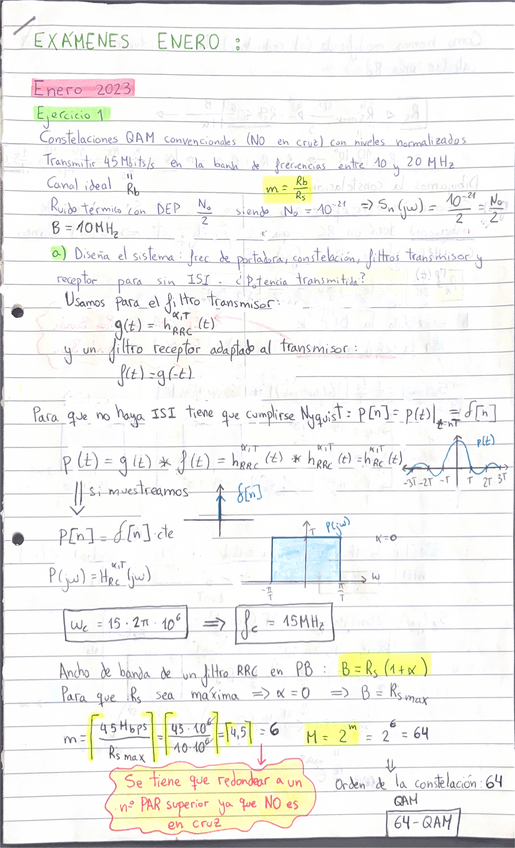 EXÁMENES ENERO :
Enero 2023
Ejercicio 1
Constelaciones QAM convencionales (NO en cruz) con niveles normalizados
Transmitir 45 Mbits/s en la banda de frecuencias entre 10 y 20 MHz
Canal ideal " Rb m = Rb/Rs
Ruido térmico con DEP No/2 siendo No = 10^-21 => Sn(jω) = 10^-21/2 = No/2
B = 10 MHz
a) Diseña el sistema : frec de portadora, constelación, filtros transmisor y
receptor para sin ISI. ¿Potencia transmitida?
Usamos para el filtro transmisor:
g(t) = h_RRC^α,T (t)
y un filtro receptor adaptado al transmisor :
f(t) = g(-t)
Para que no haya ISI tiene que cumplirse Nyquist : p[n] = p(t)|t=nT = δ[n]
p(t) = g(t) * f(t) = h_RRC^α,T (t) * h_RRC^α,T (t) = h_RC^α,T (t)
p(t)
-3T -2T -T T 2T 3T
⇓ si muestreamos
δ[n]
P[n] = δ[n]·cte
T P(jω) α=0
P(jω) = H_RC^α,T (jω)
-π/T π/T ω
ωc = 15 · 2π · 10^6 ⇒ fc = 15 MHz
Ancho de banda de un filtro RRC en PB : B = Rs (1+α)
Para que Rs sea máxima => α = 0 => B = Rs max
m = ⌈45 Mbps / Rs max⌉ = ⌈45·10^6 / 10·10^6⌉ = ⌈4,5⌉ = 6 M = 2^m = 2^6 = 64
Se tiene que redondear a un
nº PAR superior ya que NO es
en cruz
⇓
Orden de la constelación : 64
QAM
64-QAM